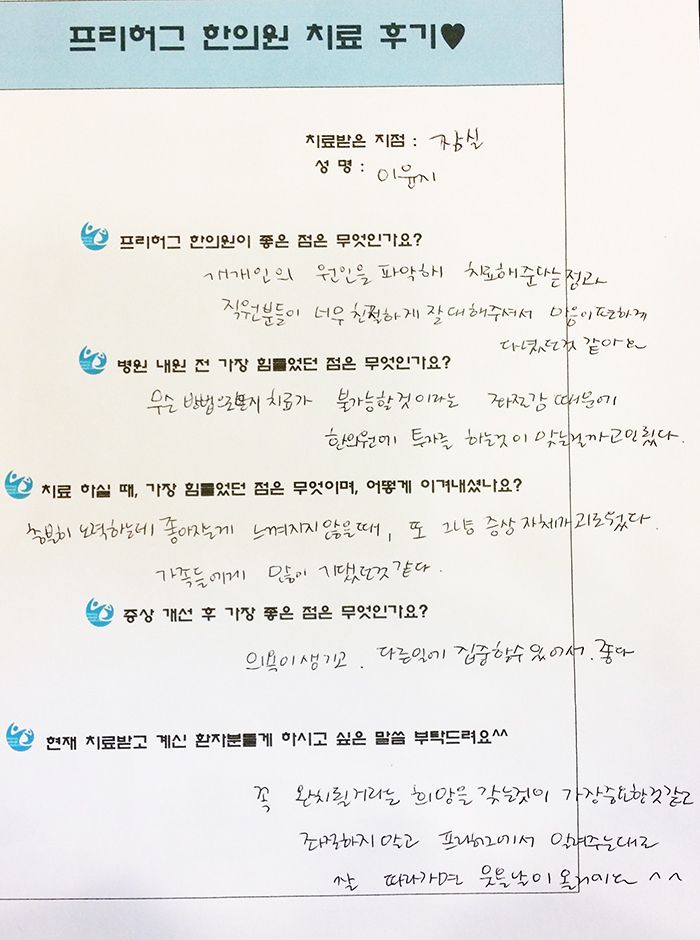 프리허그 한의원 치료 후기♥
치료받은 지점 : 잠실
성 명 : 이윤지
프리허그 한의원이 좋은 점은 무엇인가요?
개개인의 원인을 파악해 치료해준다는점과
직원분들이 너무 친절하게 잘 대해주셔서 마음이 편하게
다녔던것 같아요
병원 내원 전 가장 힘들었던 점은 무엇인가요?
무슨 방법으로든지 치료가 불가능할것이라는 좌절감 때문에
한의원에 투자를 하는것이 맞는걸까 고민됐다.
치료 하실 때, 가장 힘들었던 점은 무엇이며, 어떻게 이겨내셨나요?
충분히 노력하는데 좋아지는게 느껴지지 않을때, 또 그냥 증상 자체가 괴로웠다.
가족들에게 많이 기댔던것 같다.
증상 개선 후 가장 좋은 점은 무엇인가요?
의욕이 생기고. 다른일에 집중할수 있어서. 좋다
현재 치료받고 계신 환자분들게 하시고 싶은 말씀 부탁드려요^^
꼭 완치될거라는 희망을 갖는것이 가장중요한것같고
좌절하지 않고 프리허그에서 알려주는대로
잘 따라가면 웃을날이 올거예요 ^^